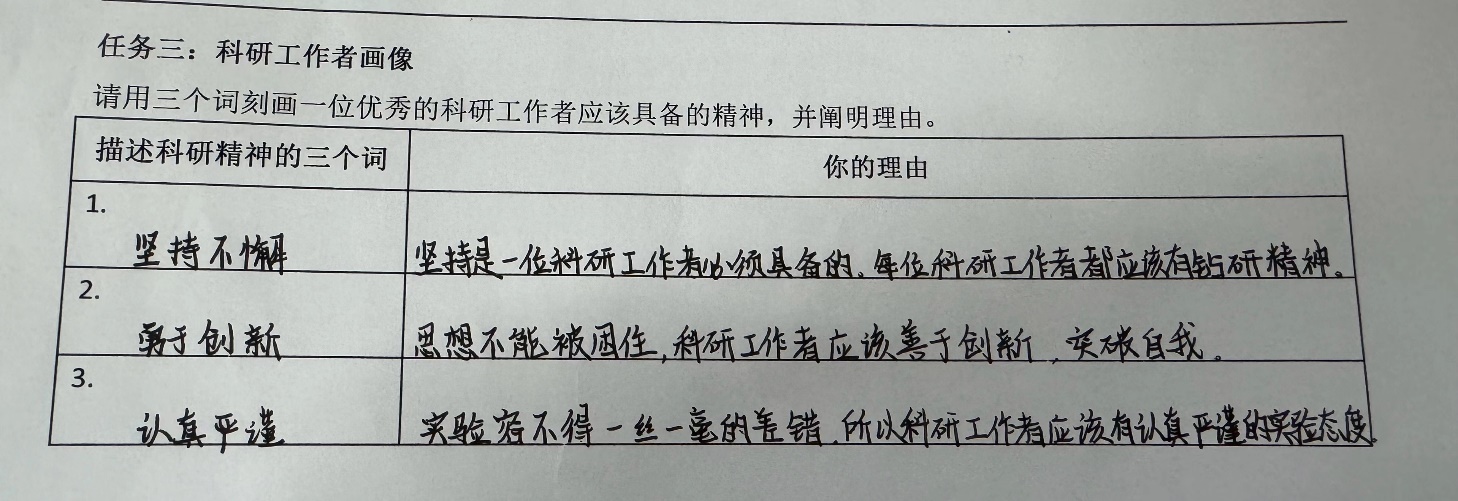 任务三：科研工作者画像
请用三个词刻画一位优秀的科研工作者应该具备的精神，并阐明理由。
描述科研精神的三个词
你的理由
1.
坚持不懈
坚持是一位科研工作者必须具备的，每位科研工作者都应该有钻研精神。
2.
勇于创新
思想不能被困住，科研工作者应该善于创新，突破自我。
3.
认真严谨
实验容不得一丝一毫的差错，所以科研工作者应该有认真严谨的实验态度。